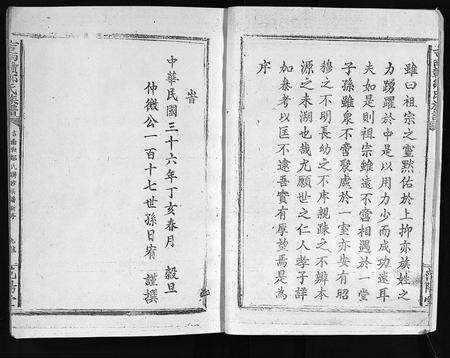 雖曰祖宗之靈黙佑於上抑亦族姓之
力踴躍於中是以用力少而成功速耳
夫如是則祖宗雖遠不啻相遇於一堂
子孫雖衆不啻聚處於一室亦安有昭
穆之不明長幼之不序親疎之不辨本
源之未溯也哉尤願世之仁人孝子詳
如叅考以匡不逮吾實有厚望焉是為
序
旹
中華民國三十六年丁亥春月 穀旦
仲微公一百十七世孫日宥 謹撰